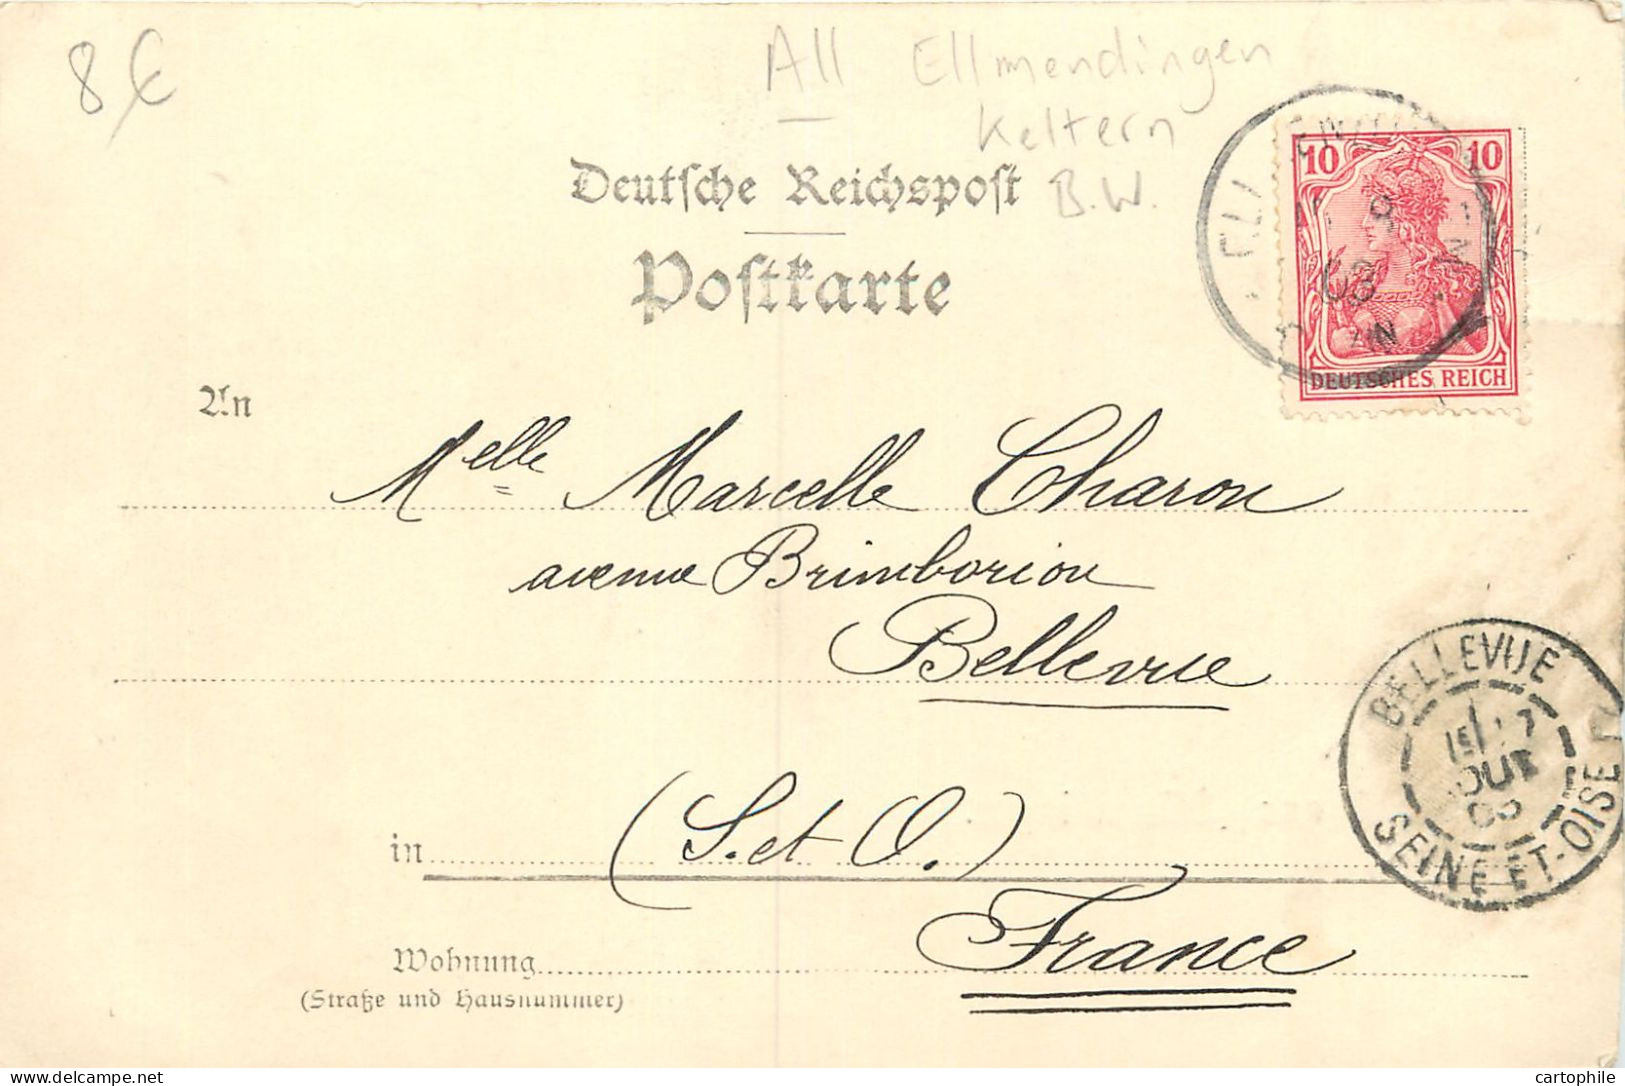 8 €
All Ellmendingen
Keltern
B.W.
Deutsche Reichspost
Postkarte
10 10
03
DEUTSCHES REICH
An
Melle Marcelle Charon
avenue Brimborion
Bellevue
BELLEVUE
SEINE-ET-OISE
in
(S. et O.)
France
Wohnung
(Straße und Hausnummer)
cartophile